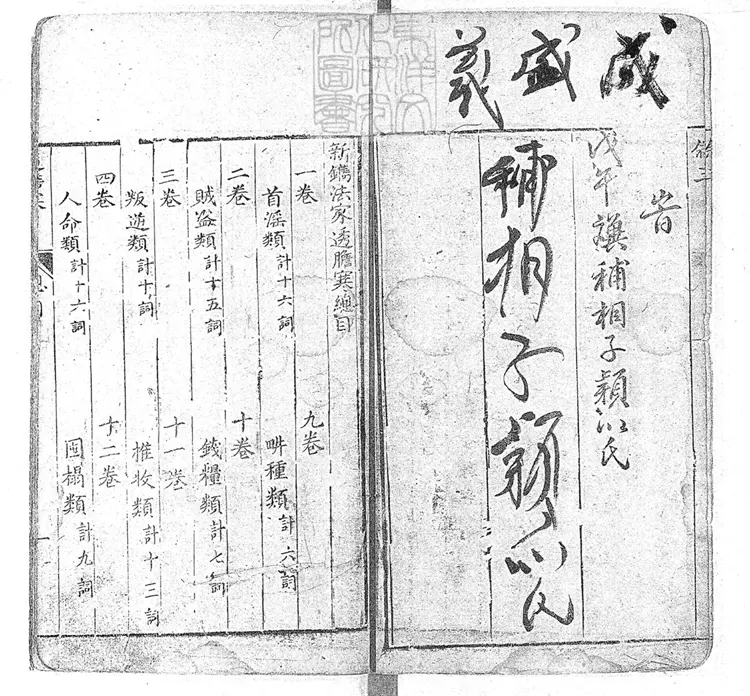 義盛成
戊午
補相子穎以氏
補相子穎以氏
新鐫法家透膽寒總目
一卷
首滛類計十六詞
二卷
賊盗類計十五詞
三卷
叛逆類計十詞
四卷
人命類計十六詞
九卷
畊種類計六詞
十卷
錢糧類計七詞
十一卷
推收類計十三詞
十二卷
計九詞
東洋文
化研究
所圖書